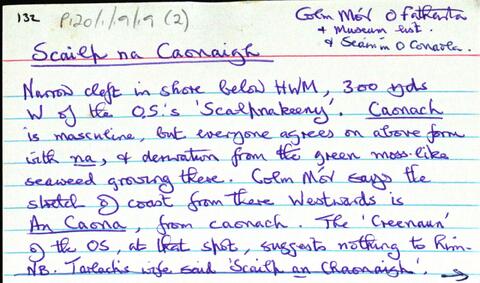 132
P120/1/9/9 (2)
Colm Mór O
+ Museum list.
+ Seáinín O Conaola.
Scailp na Caonaigh
Narrow cleft in shore below HWM, 300 yds
W of the O.S.'s 'Scalpnakeeny'. Caonach
is masculine, but everyone agrees on above form
with na, & derivation from the green moss-like
seaweed growing there. Colm Mór says the
stretch of coast from there Westwards is
An Caona, from caonach. The 'Creenaun'
of the OS, at that spot, suggests nothing to him.
NB. Tarlach's wife said 'Scailp an Chaonaigh'. →